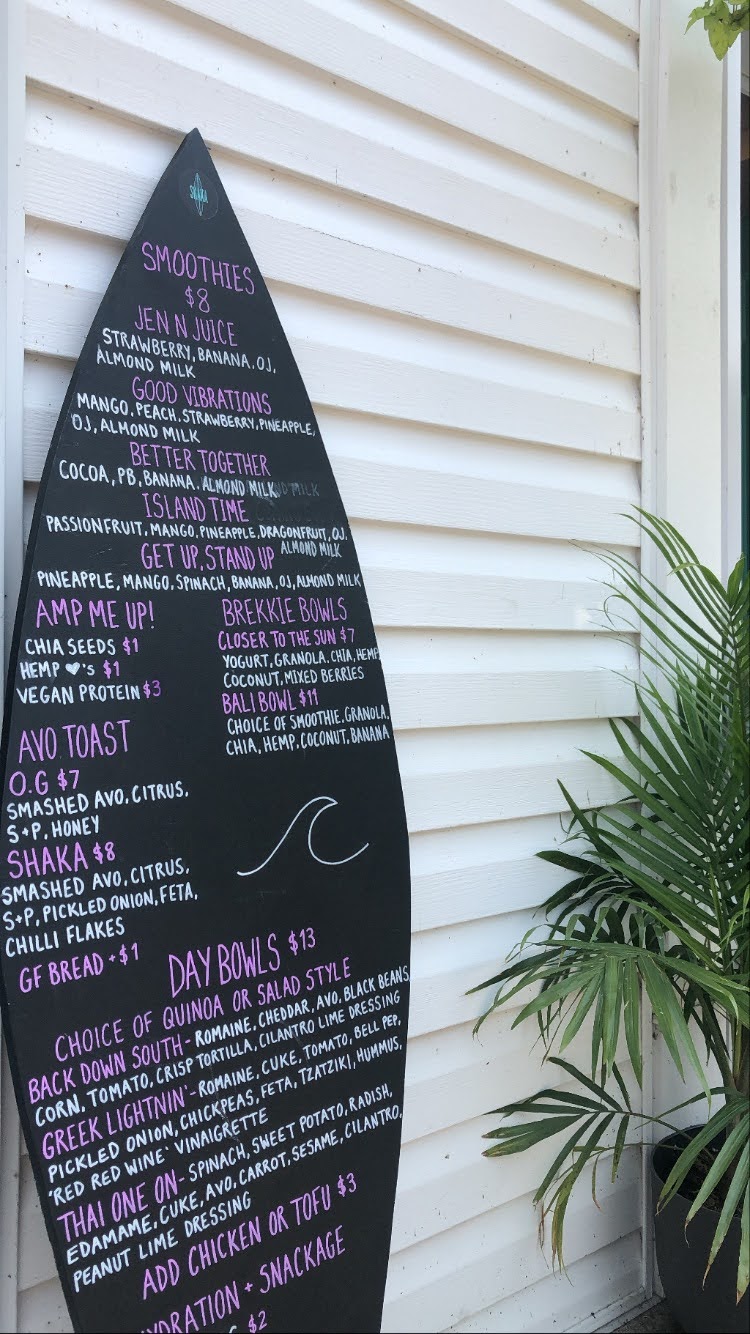 SHAKA
SMOOTHIES
$8
JEN N JUICE
STRAWBERRY, BANANA, OJ,
ALMOND MILK
GOOD VIBRATIONS
MANGO, PEACH, STRAWBERRY, PINEAPPLE,
OJ, ALMOND MILK
BETTER TOGETHER
COCOA, PB, BANANA, ALMOND MILK
ISLAND TIME
PASSIONFRUIT, MANGO, PINEAPPLE, DRAGONFRUIT, OJ,
ALMOND MILK
GET UP, STAND UP
PINEAPPLE, MANGO, SPINACH, BANANA, OJ, ALMOND MILK
AMP ME UP!
CHIA SEEDS $1
HEMP ♥'s $1
VEGAN PROTEIN $3
BREKKIE BOWLS
CLOSER TO THE SUN $7
YOGURT, GRANOLA, CHIA, HEMP,
COCONUT, MIXED BERRIES
BALI BOWL $11
CHOICE OF SMOOTHIE, GRANOLA,
CHIA, HEMP, COCONUT, BANANA
AVO TOAST
O.G $7
SMASHED AVO, CITRUS,
S+P, HONEY
SHAKA $8
SMASHED AVO, CITRUS,
S+P, PICKLED ONION, FETA,
CHILLI FLAKES
GF BREAD +$1
DAY BOWLS $13
CHOICE OF QUINOA OR SALAD STYLE
BACK DOWN SOUTH - ROMAINE, CHEDDAR, AVO, BLACK BEANS,
CORN, TOMATO, CRISP TORTILLA, CILANTRO LIME DRESSING
GREEK LIGHTNIN' - ROMAINE, CUKE, TOMATO, BELL PEP,
PICKLED ONION, CHICKPEAS, FETA, TZATZIKI, HUMMUS,
'RED RED WINE' VINAIGRETTE
THAI ONE ON - SPINACH, SWEET POTATO, RADISH,
EDAMAME, CUKE, AVO, CARROT, SESAME, CILANTRO,
PEANUT LIME DRESSING
ADD CHICKEN OR TOFU $3
YDRATION + SNACKAGE
$2